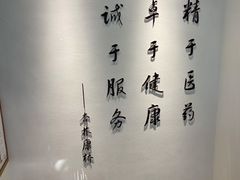 精于医药
卓于健康
诚于服务